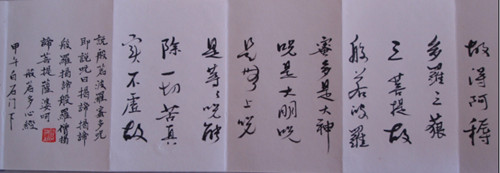 故得阿耨
多羅三藐
三菩提故
般若波羅
蜜多是大神
呪是大明呪
是無上呪
是等等呪能
除一切苦真
實不虛故
說般若波羅蜜多呪
即說呪曰揭諦揭諦
般羅揭諦般羅僧揭
諦菩提薩婆訶
般若多心經
甲午白石門下